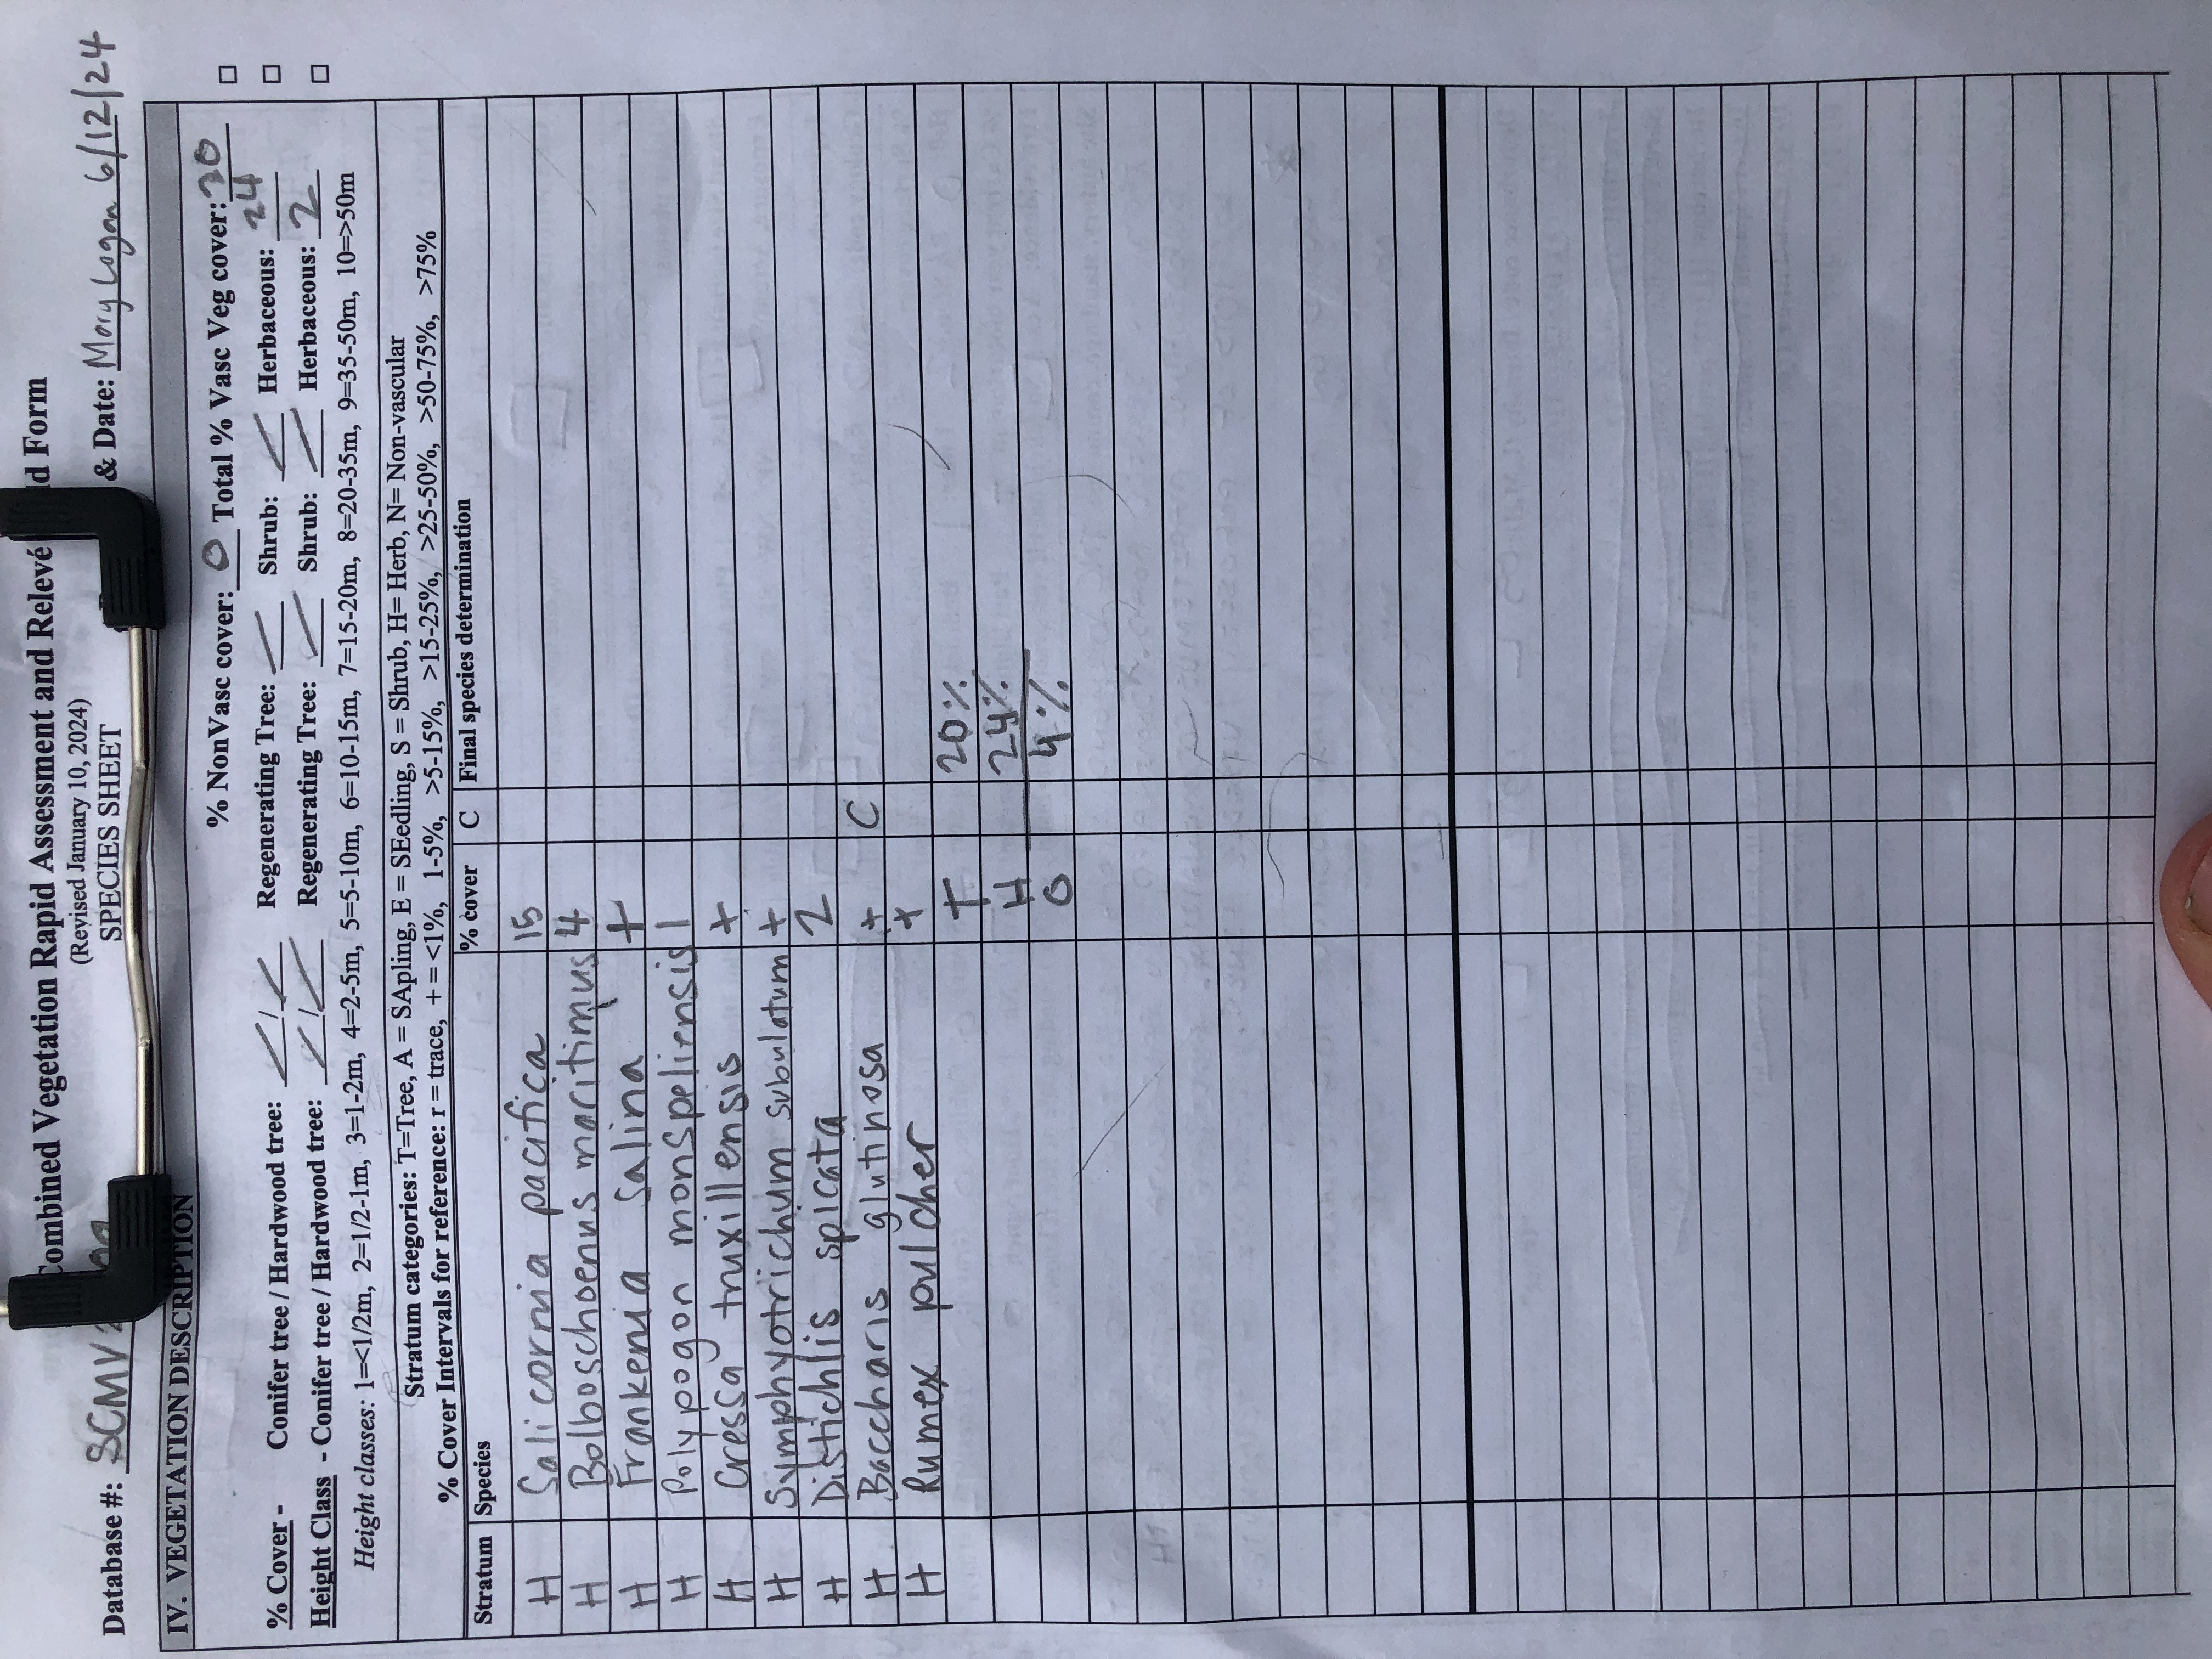 Combined Vegetation Rapid Assessment and Relevé Form
(Revised January 10, 2024)
SPECIES SHEET
Database #: SCMV & Date: Mary Logan 6/12/24
IV. VEGETATION DESCRIPTION
% NonVasc cover: 0 Total % Vasc Veg cover: 20
% Cover - Conifer tree / Hardwood tree: — / — Regenerating Tree: — Shrub: — Herbaceous: 24
Height Class - Conifer tree / Hardwood tree: — / — Regenerating Tree: — Shrub: — Herbaceous: 2
Height classes: 1=<1/2m, 2=1/2-1m, 3=1-2m, 4=2-5m, 5=5-10m, 6=10-15m, 7=15-20m, 8=20-35m, 9=35-50m, 10=>50m
Stratum categories: T=Tree, A = SApling, E = SEedling, S = Shrub, H= Herb, N= Non-vascular
% Cover Intervals for reference: r = trace, + = <1%, 1-5%, >5-15%, >15-25%, >25-50%, >50-75%, >75%
Stratum Species % cover C Final species determination
H Salicornia pacifica 15
H Bolboschoenus maritimus 4
H Frankenia salina +
H Polypogon monspeliensis 1
H Cressa truxillensis +
H Symphyotrichum subulatum +
H Distichlis spicata 2
H Baccharis glutinosa + C
H Rumex pulcher +
T 20%
H 24%
O 4%